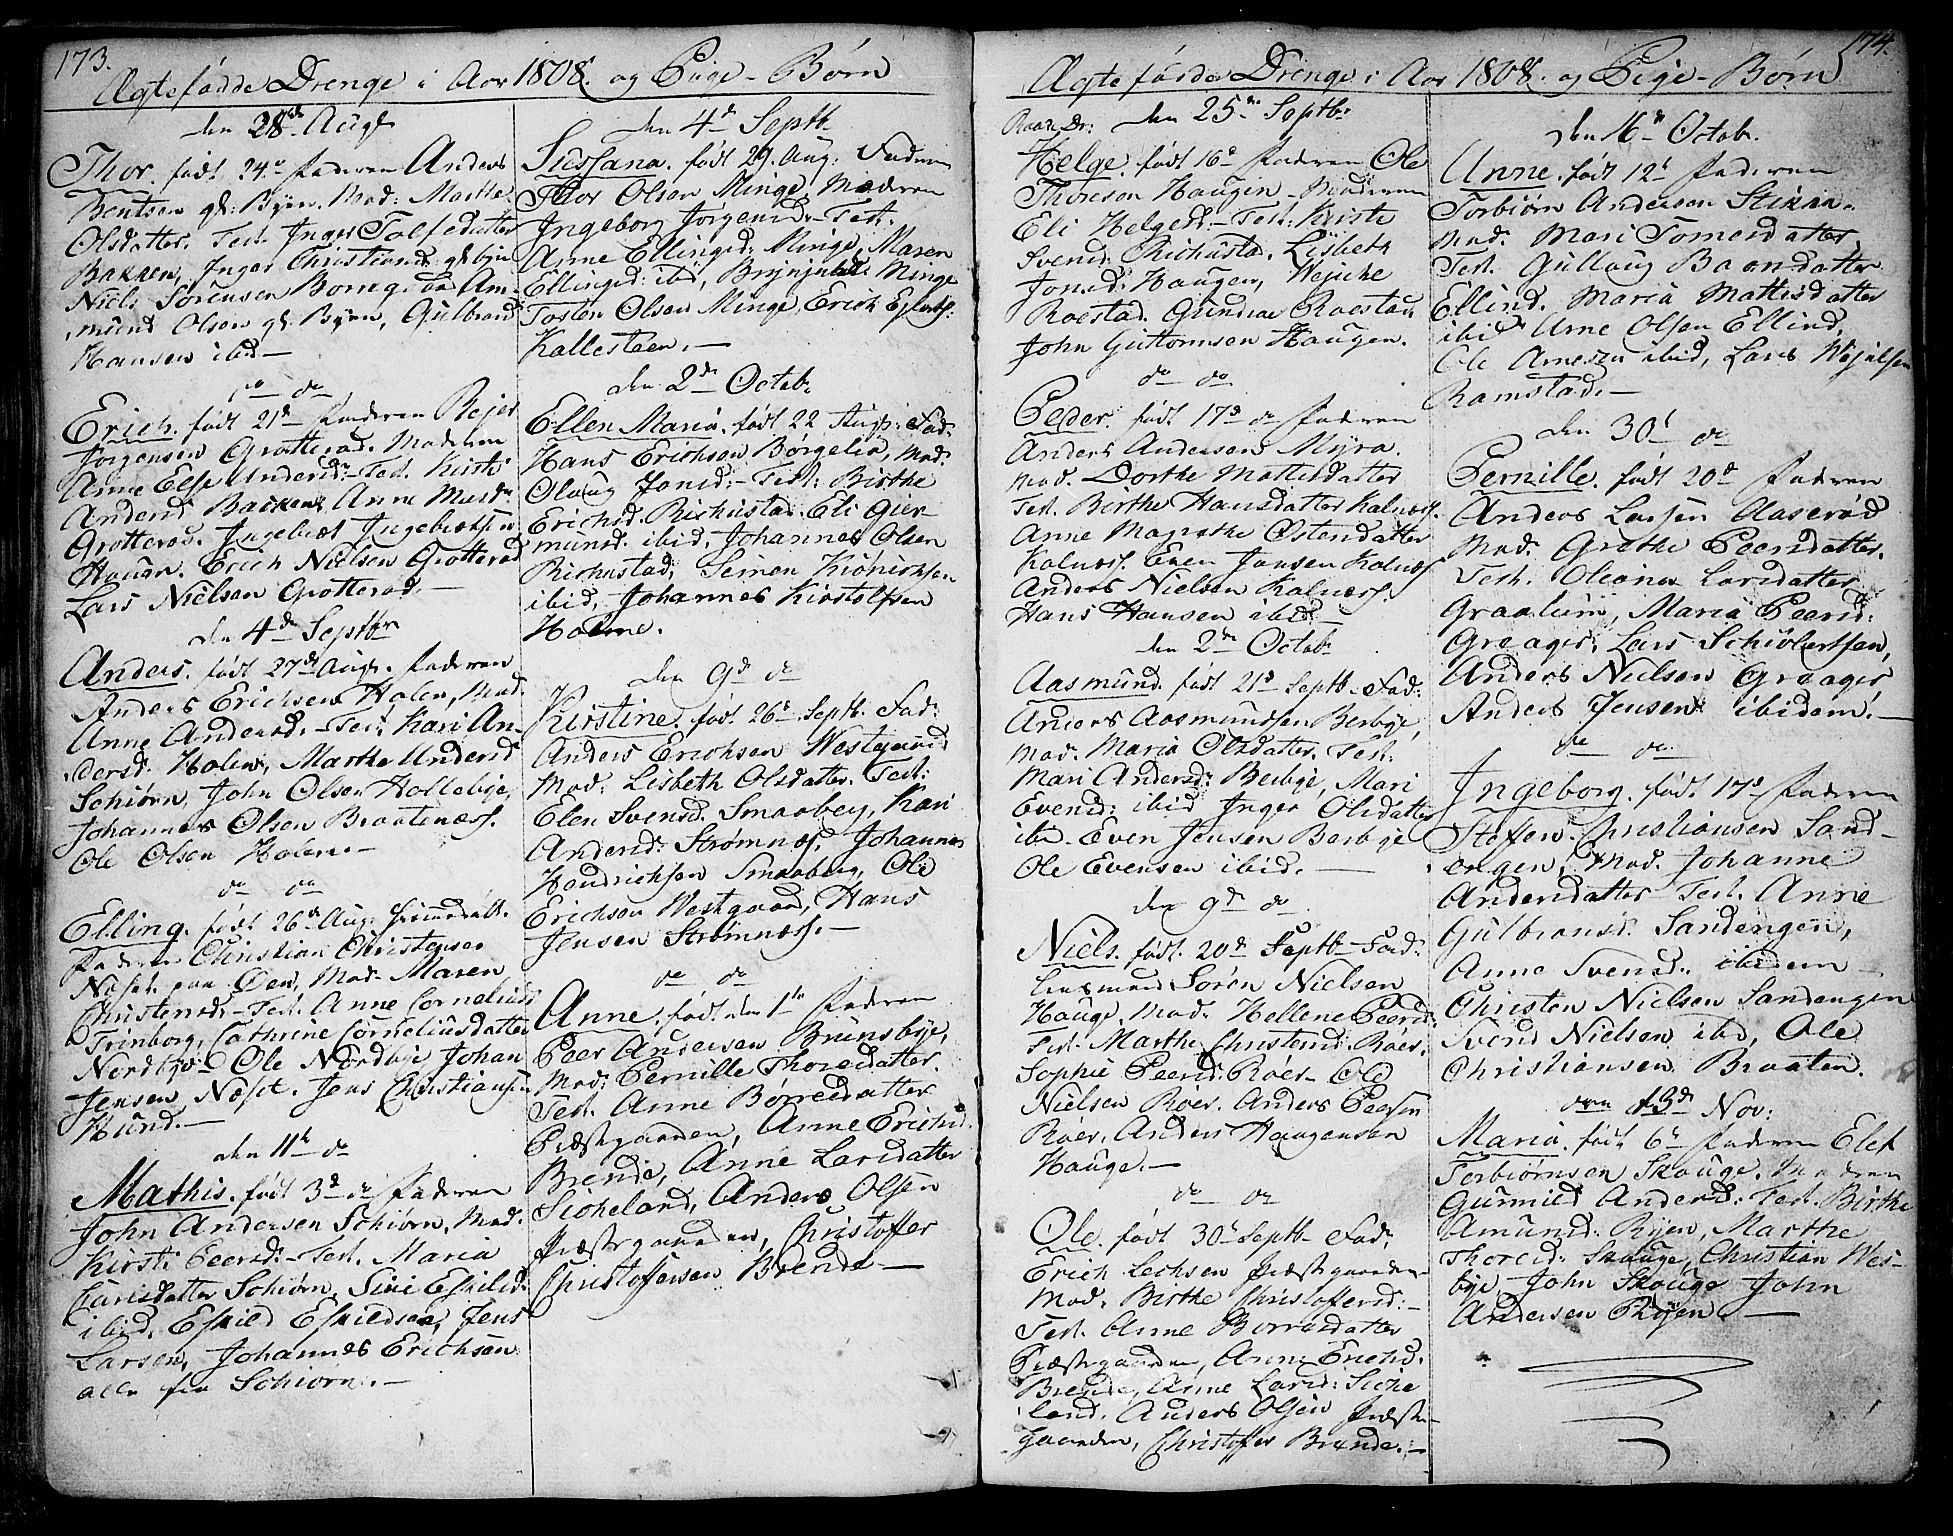 173.
Ægtefødde Drenge i Aar 1808. og Pige-Børn
den 28de Augt
Thor. født 24de Faderen Anders
Bentsen gl: Byen. Mod: Marthe
Olsdatter. Test. Inger Tolfsdatter
Bakken, Inger Christiansd. gl: byen
Niels Sørensen Borreg: Am-
mund Olsen gl: Byen, Gulbrand
Hansen ibid —
do do
Erich. født 21de Faderen Rejer
Jørgensen Grotterød. Moderen
Anne Else Andersdr. Test. Kirsti
Andersd. Bakken, Anne
Grotterød. Ingebret Ingebretsen
Haugen. Erich Nielsen Grotterød
Lars Nielsen Grotterød. —
den 4de Septbr
Anders. født 27de Augt. Faderen
Anders Erichsen Holen, Mod.
Anne Andersd. — Test. Kari An-
dersd. Holen, Marthe Andersd
Schiørn, John Olsen Hollebye,
Johannes Olsen Braatenæss.
Ole Olsen Holen. —
do do
Elling. født 26de Aug: hjemedøbt.
Faderen Christian Christensen
Næset paa Øen, Mod. Maren
Christensd. — Test. Anne Corneliusd
Trinborg, Cathrine Corneliusdatter
Nordbye Ole Nordbye Johan
Jensen Næset. Jens Christiansen
Hund. —
den 11te do
Mathis. født 3de do Faderen
John Andersen Schiørn, Mod.
Kirsti Peersd. — Test. Maria
Larsdatter Schiørn, Siri Eskilsd:
ibid. Eskild Eskildsen, Jens
Larsen, Johannes Erichsen
alle fra Schiørn. —
den 4de Septb.
Sussana. født 29. Aug: Faderen
Thor Olsen Minge, Moderen
Ingeborg Jørgensd. — Test.
Anne Ellingsd: Minge, Maren
Ellingsd: ibid, Minge
Tosten Olsen Minge, Erich
Kallesteen. —
den 2den Octob.
Ellen Maria. født 22 Aug: Fad.
Hans Erichsen Børgelia, Mod.
Olaug Jonsd: — Test: Birthe
Erichsd. Rishustad. Eli Gier
mundsd. ibid, Johannes Olsen
Rishustad, Seimen
ibid, Johannes
Holme.
den 9de do
Kirstine. født 26de Septb. Fad:
Anders Erichsen Westgaard
Mod: Lisbeth Olsdatter. Test:
Elen Svensd. Smaaberg, Kari
Andersd: Strømnæs, Johannes
Hendrichsen Smaaberg, Ole
Erichsen Westgaard, Hans
Jensen Strømnæss. —
do do
Anne. født den 1te Faderen
Peer Andersen Brunsbye,
Mod: Pernille Thoresdatter.
Test. Anne Børresdatter
Præstgaarden, Anne Erichsd.
Brende, Anne Larsdatter
Sicheland, Anders Olsen
Præstegaarden, Christoffer
Christoffersen Brende —
174.
Ægtefødde Drenge i Aar 1808. og Pige-Børn
den 25de Septb.
Helge. født 16de Faderen Ole
Thoresen Haugen. Moderen
Eli Helgesd. — Test: Kirsti
Svensd. Richustad. Lisbeth
Jonsd: Haugen,
Roestad. Gunder Roestad
John Guttormsen Haugen.
do do
Peder. født 17de do Faderen
Anders Andersen Myra.
Mod. Dorthe Mattisdatter
Test. Birthe Hansdatter Kalnæss.
Anne Magrethe Østensdatter
Kalnæss. Even Jansen Kalnæss
Anders Nielsen Kalnæss.
Hans Hansen ibid. —
den 2den Octob
Aasmund. født 21de Septb. Fad:
Anders Aasmundsen Berbye,
Mod. Maria Olsdatter. Test:
Mari Andersd: Berbye, Mari
Evensd: ibid Inger Olsdatter
ibid. Even Jensen Berbye
Ole Evensen ibid. —
den 9de do
Niels. født 20de Septb. — Fad:
Søren Nielsen
Hauge, Mod. Hellene Peersd:
Test. Marthe Christensd: Røer.
Sophie Peersd: Røer — Ole
Nielsen Røer. Anders Peersen
Røer, Anders Haagensen
Hauge. —
do do
Ole. født 30te Septb. Fad.
Erich Præstgaarden
Mod. Birthe Christoffersd: —
Test. Anne Børresdatter
Præstegaarden, Anne Erichsd.
Brende, Anne Larsd: Siche
land. Anders Olsen Præste-
gaarden, Christoffer Brende. —
den 16de Octob.
Anne. født 12te Faderen
Torbiørn Andersen
Mod. Mari Tomesdatter
Test. Gullaug Baardsdatter
Ellind. Maria Mattisdatter
ibid Arne Olsen Ellind,
Ole Arnesen ibid, Lars
Ramstad. —
den 30te do
Pernille. født 20de Faderen
Anders Larsen Aaserød
Mod. Grethe Peersdatter.
Test. Oleana Larsdatter
Graalum, Maria Peersd:
Greager, Lars Schiølertsen,
Anders Nielsen Greager
Anders Jensen ibidem. —
do do
Ingeborg. født 17de Faderen
Steffen Christiansen Sand-
engen, Mod. Johanne
Andersdatter Test. Anne
Gulbransd. Sandengen,
Anne Svensd. ibidem —
Christen Nielsen Sandengen
Svend Nielsen ibid, Ole
Christiansen Braaten.
den 13de Nov:
Maria. født 6te Faderen Elef
Torbiørnsen Skauge. Moderen
Gunnild Andersd: Test. Birthe
Amundsd: Ryen, Marthe
Thoresd: Skauge, Christian Wes-
bye John Skauge John
Andersen Ryen —